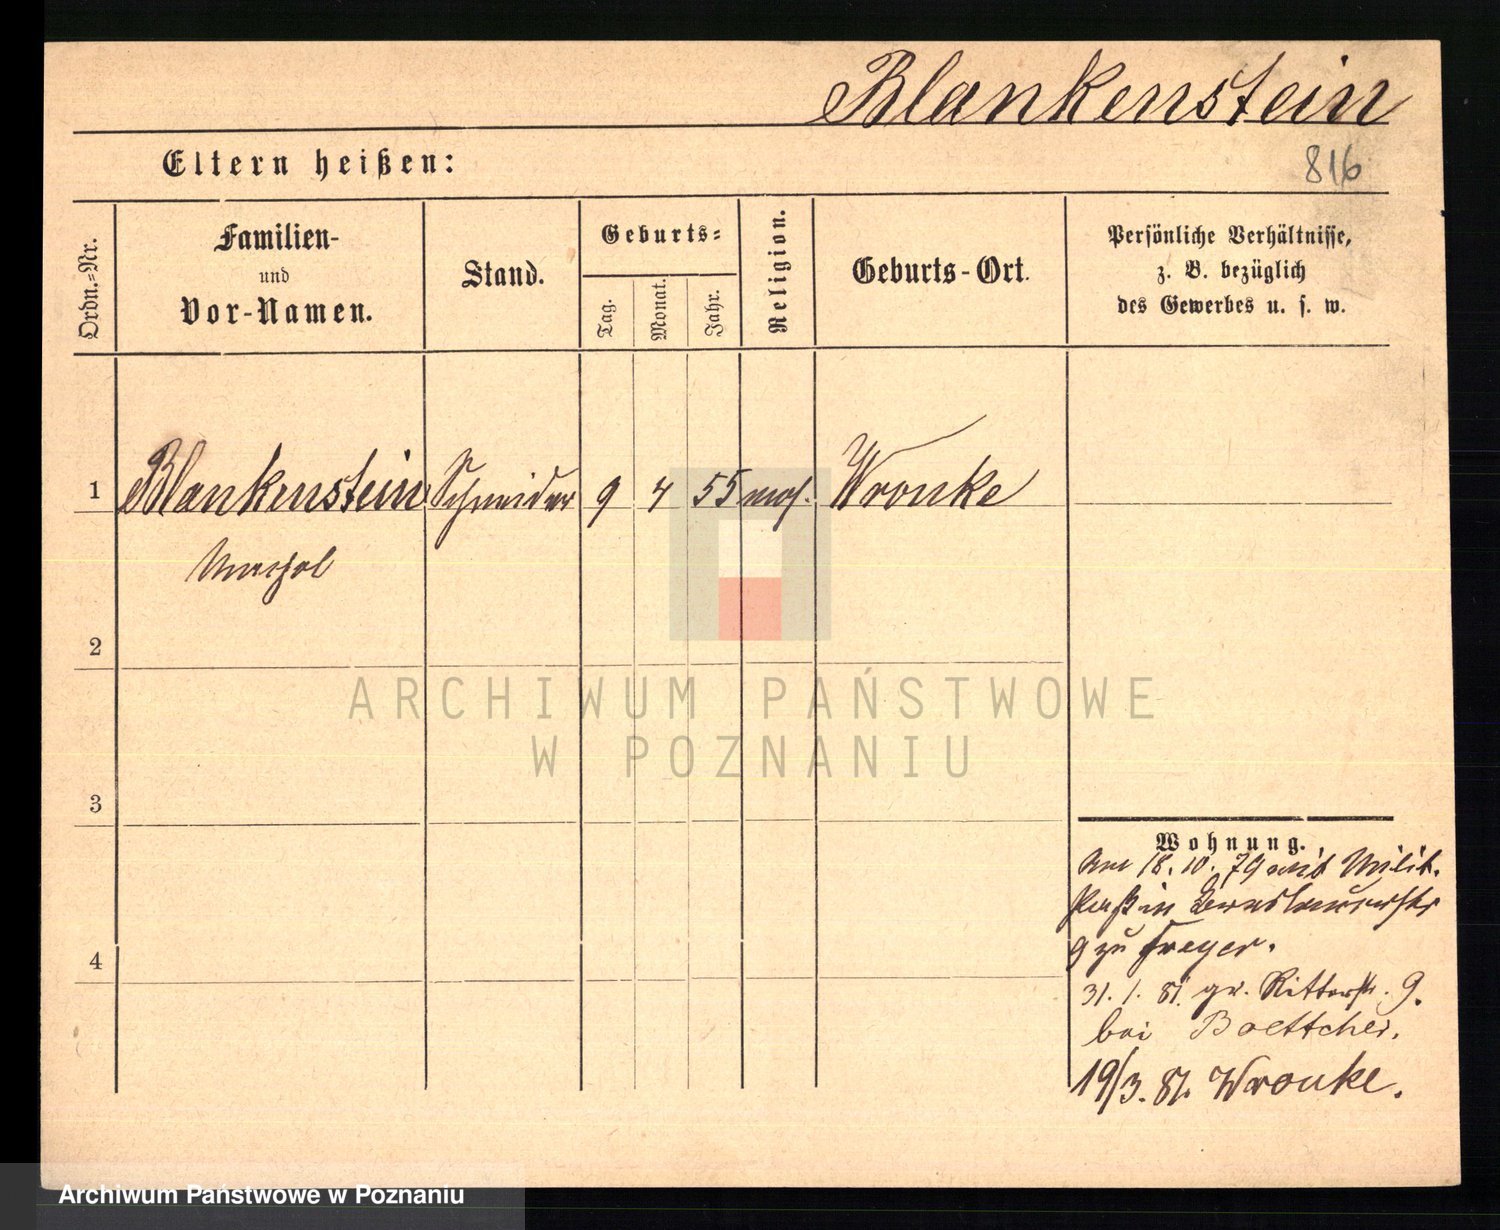 Blankenstein
816
Eltern heißen:
Ordn.-Nr.
Familien-
und
Vor-Namen.
Stand.
Geburts-
Tag.
Monat.
Jahr.
Religion.
Geburts-Ort.
Persönliche Verhältnisse,
z. B. bezüglich
des Gewerbes u. s. w.
1 Blankenstein Schneider 9 4 55 mos. Wronke
2
3
4
ARCHIWUM PAŃSTWOWE
W POZNANIU
Wohnung.
Am 18.10.79 mit Milit.
Paß in
9 zu Freyer.
31.1.81. gr. Ritterstr. 9.
bei Boettcher.
19/3.81. Wronke.
Archiwum Państwowe w Poznaniu